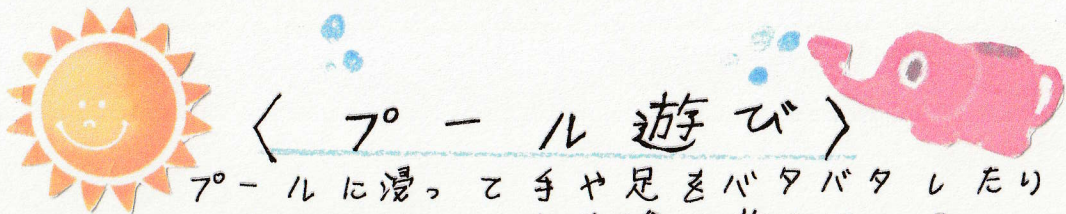 〈プール遊び〉
プールに浸って手や足をバタバタしたり